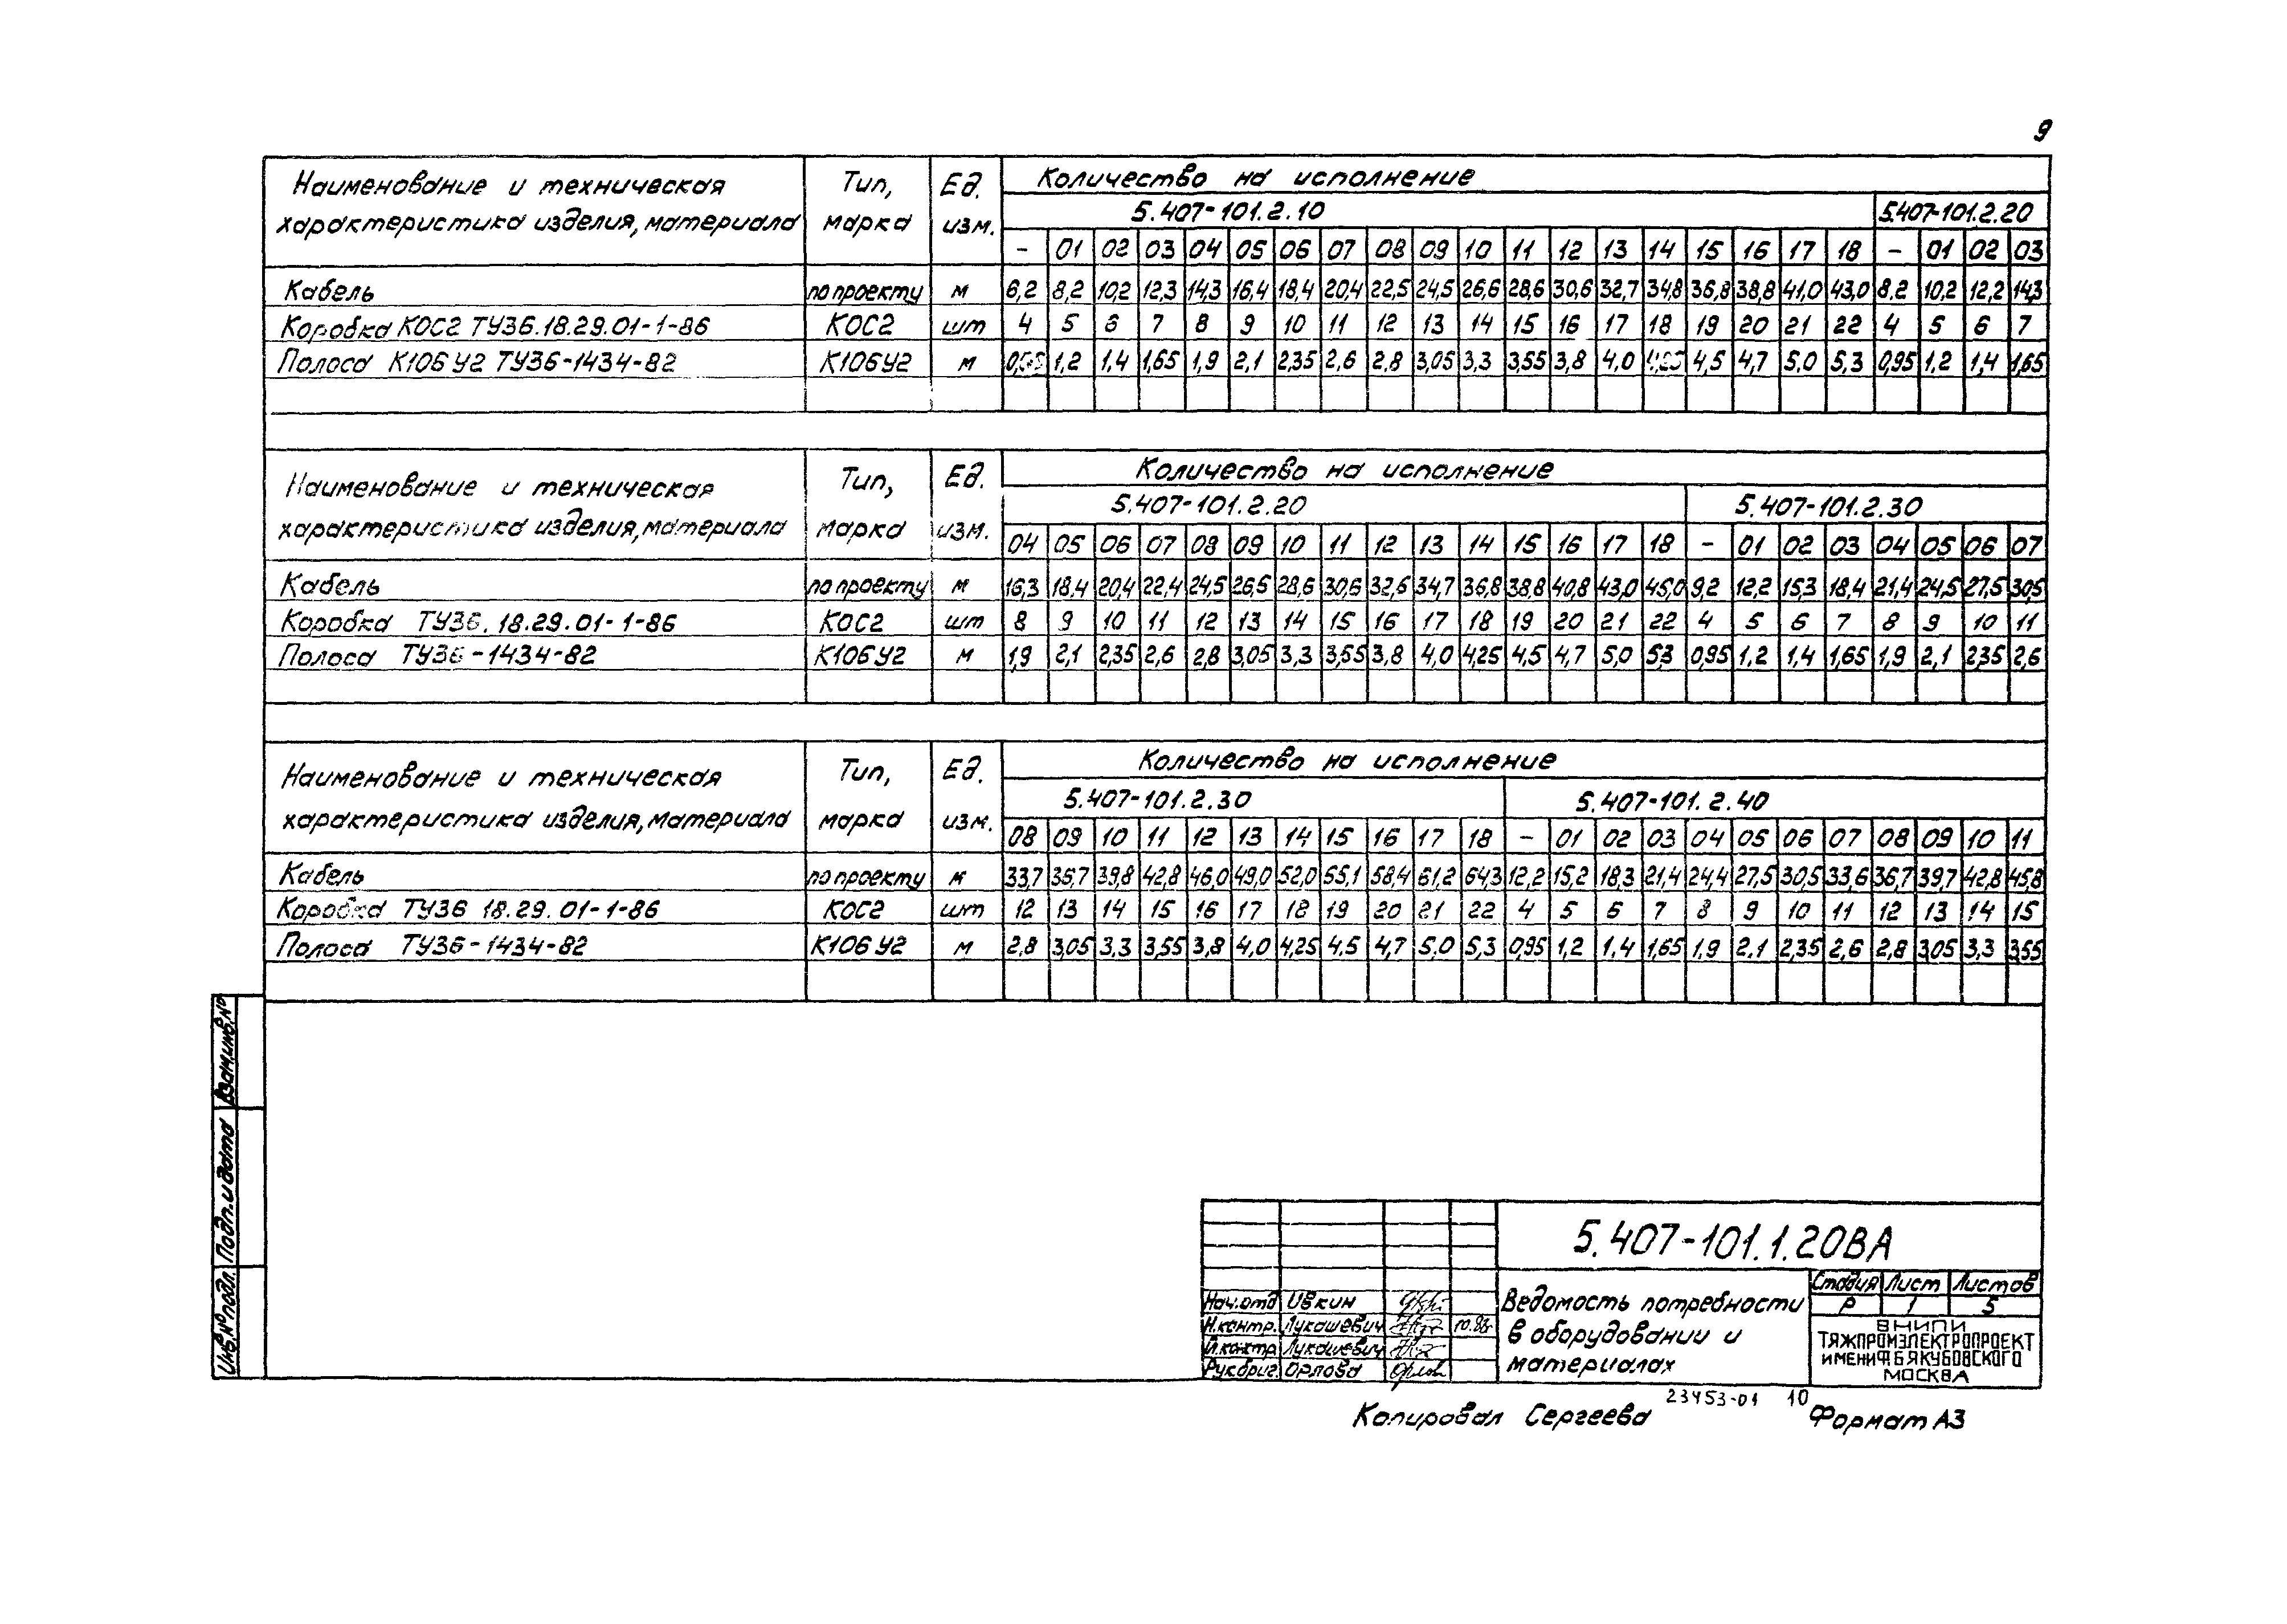 9
Наименование и техническая характеристика изделия, материала Тип, марка Ед. изм. Количество на исполнение
5.407-101.2.10 5.407-101.2.20
- 01 02 03 04 05 06 07 08 09 10 11 12 13 14 15 16 17 18 - 01 02 03
Кабель по проекту м 6,2 8,2 10,2 12,3 14,3 16,4 18,4 20,4 22,5 24,5 26,6 28,6 30,6 32,7 34,8 36,8 38,8 41,0 43,0 8,2 10,2 12,2 14,3
Коробка КОС2 ТУ36.18.29.01-1-86 КОС2 шт 4 5 6 7 8 9 10 11 12 13 14 15 16 17 18 19 20 21 22 4 5 6 7
Полоса К106У2 ТУ36-1434-82 К106У2 м 1,2 1,4 1,65 1,9 2,1 2,35 2,6 2,8 3,05 3,3 3,55 3,8 4,0 4,5 4,7 5,0 5,3 0,95 1,2 1,4 1,65
Наименование и техническая характеристика изделия, материала Тип, марка Ед. изм. Количество на исполнение
5.407-101.2.20 5.407-101.2.30
04 05 06 07 08 09 10 11 12 13 14 15 16 17 18 - 01 02 03 04 05 06 07
Кабель по проекту м 16,3 18,4 20,4 22,4 24,5 26,5 28,6 30,6 32,6 34,7 36,8 38,8 40,8 43,0 45,0 9,2 12,2 15,3 18,4 21,4 24,5 27,5 30,5
Коробка ТУ36.18.29.01-1-86 КОС2 шт 8 9 10 11 12 13 14 15 16 17 18 19 20 21 22 4 5 6 7 8 9 10 11
Полоса ТУ36-1434-82 К106У2 м 1,9 2,1 2,35 2,6 2,8 3,05 3,3 3,55 3,8 4,0 4,25 4,5 4,7 5,0 5,3 0,95 1,2 1,4 1,65 1,9 2,1 2,35 2,6
Наименование и техническая характеристика изделия, материала Тип, марка Ед. изм. Количество на исполнение
5.407-101.2.30 5.407-101.2.40
08 09 10 11 12 13 14 15 16 17 18 - 01 02 03 04 05 06 07 08 09 10 11
Кабель по проекту м 33,7 36,7 39,8 42,8 46,0 49,0 52,0 55,1 58,4 61,2 64,3 12,2 15,2 18,3 21,4 24,4 27,5 30,5 33,6 36,7 39,7 42,8 45,8
Коробка ТУ36 18.29.01-1-86 КОС2 шт 12 13 14 15 16 17 18 19 20 21 22 4 5 6 7 8 9 10 11 12 13 14 15
Полоса ТУ36-1434-82 К106У2 м 2,8 3,05 3,3 3,55 3,8 4,0 4,25 4,5 4,7 5,0 5,3 0,95 1,2 1,4 1,65 1,9 2,1 2,35 2,6 2,8 3,05 3,3 3,55
Взам.инв.№
Подп. и дата
Инв.№ подл.
5.407-101.1.20ВА
Нач.отд Ивкин
Н.контр. Лукашевич
Лукашевич
Рук.бриг. Орлова
Ведомость потребности
в оборудовании и
материалах
Стадия Лист Листов
Р 1 5
ВНИПИ
ТЯЖПРОМЭЛЕКТРОПРОЕКТ
ИМЕНИ Ф.Б.ЯКУБОВСКОГО
МОСКВА
23453-01 10
Копировал Сергеева Формат А3